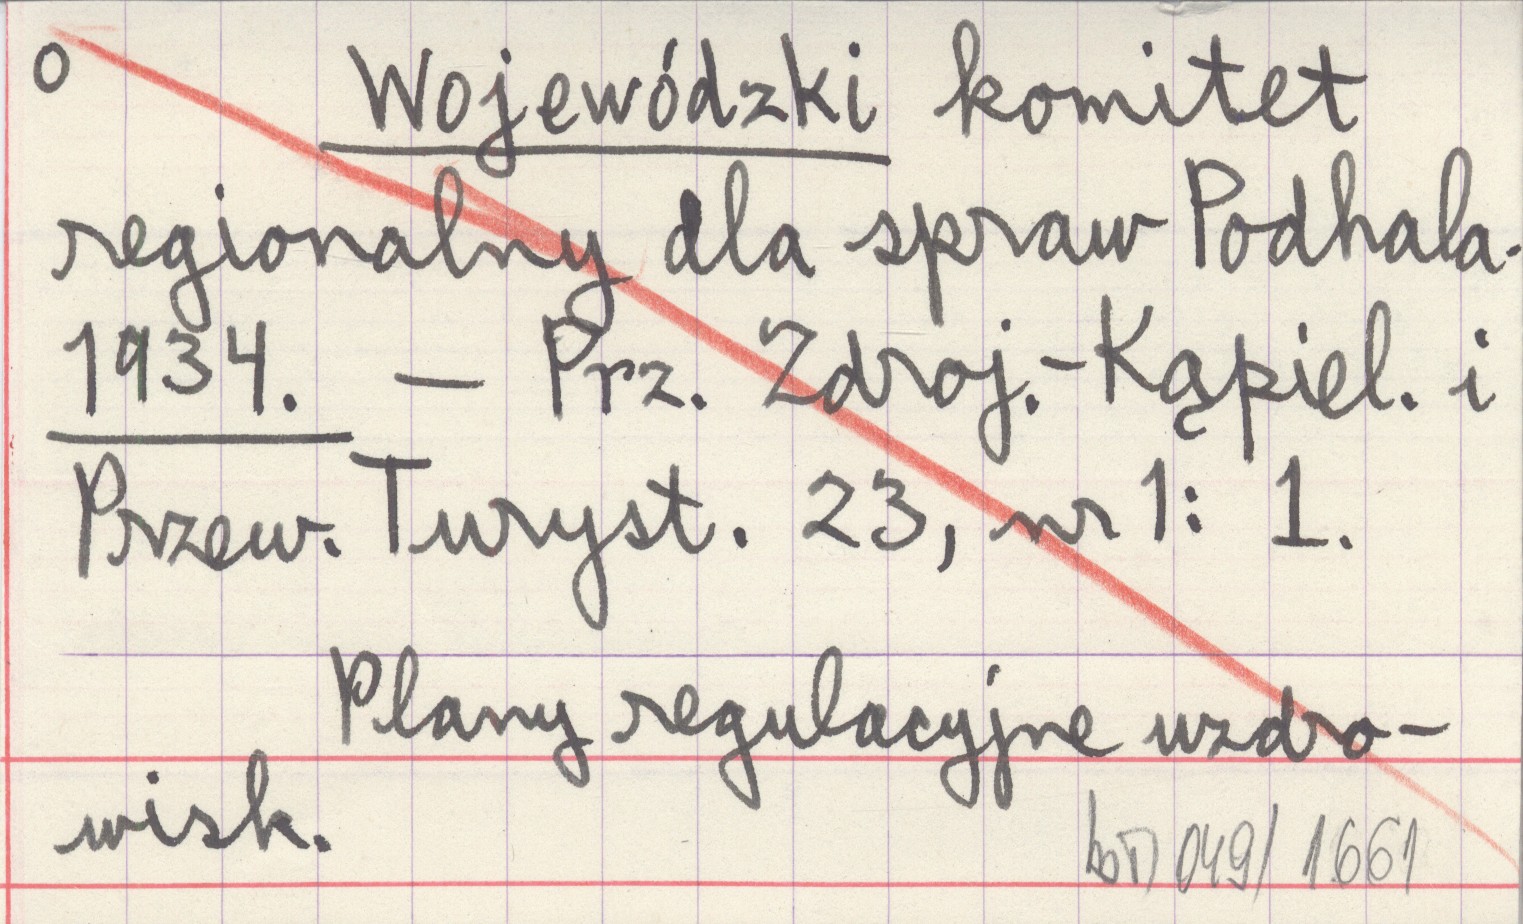 o Wojewódzki komitet
regionalny dla spraw Podhala.
1934. — Prz. Zdroj.-Kąpiel. i
Przew. Turyst. 23, nr 1: 1.
Plany regulacyjne uzdro-
wisk.
049/ 1661